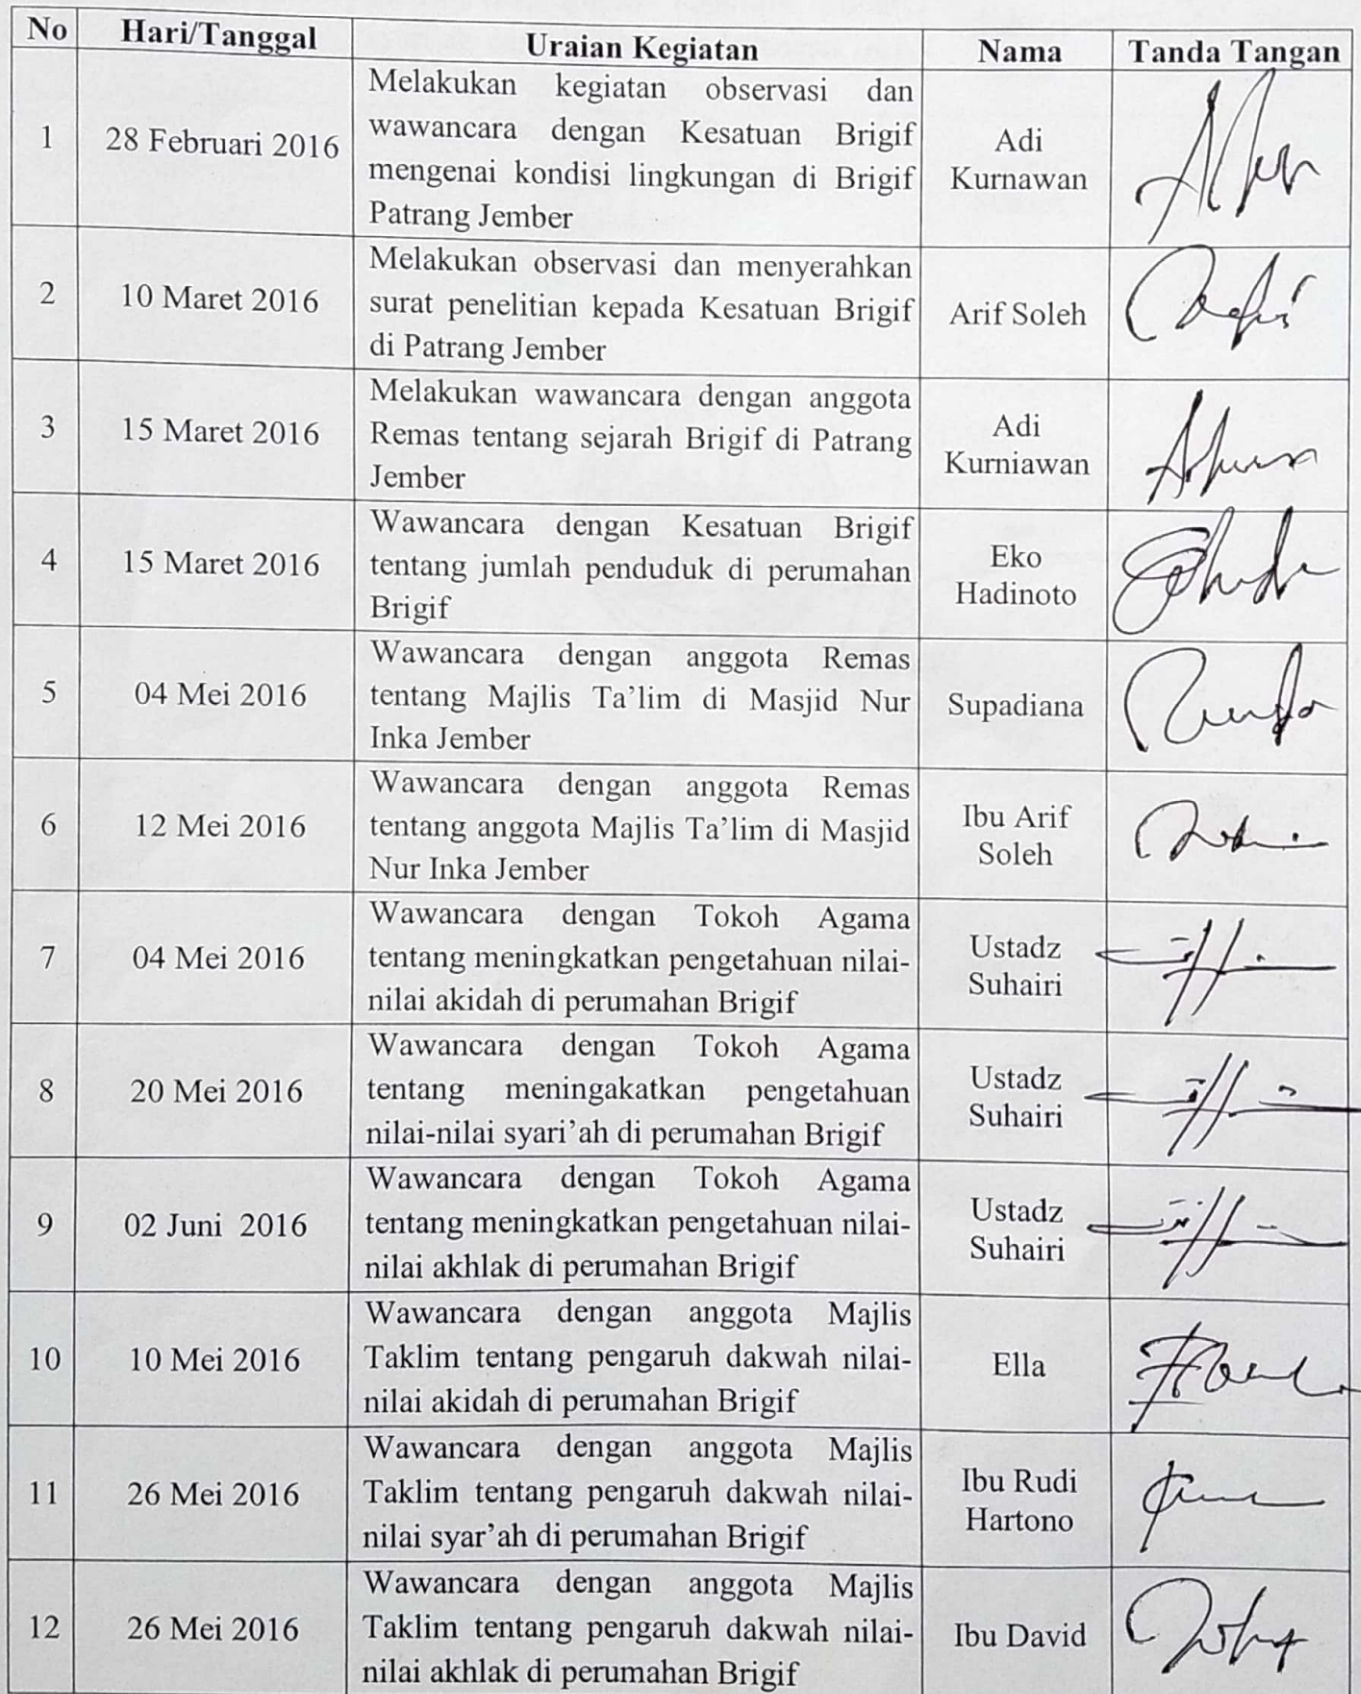 No Hari/Tanggal Uraian Kegiatan Nama Tanda Tangan
1 28 Februari 2016 Melakukan kegiatan observasi dan
wawancara dengan Kesatuan Brigif
mengenai kondisi lingkungan di Brigif
Patrang Jember
Adi
Kurnawan
2 10 Maret 2016 Melakukan observasi dan menyerahkan
surat penelitian kepada Kesatuan Brigif
di Patrang Jember
Arif Soleh
3 15 Maret 2016 Melakukan wawancara dengan anggota
Remas tentang sejarah Brigif di Patrang
Jember
Adi
Kurniawan
4 15 Maret 2016 Wawancara dengan Kesatuan Brigif
tentang jumlah penduduk di perumahan
Brigif
Eko
Hadinoto
5 04 Mei 2016 Wawancara dengan anggota Remas
tentang Majlis Ta'lim di Masjid Nur
Inka Jember
Supadiana
6 12 Mei 2016 Wawancara dengan anggota Remas
tentang anggota Majlis Ta'lim di Masjid
Nur Inka Jember
Ibu Arif
Soleh
7 04 Mei 2016 Wawancara dengan Tokoh Agama
tentang meningkatkan pengetahuan nilai-
nilai akidah di perumahan Brigif
Ustadz
Suhairi
8 20 Mei 2016 Wawancara dengan Tokoh Agama
tentang meningakatkan pengetahuan
nilai-nilai syari'ah di perumahan Brigif
Ustadz
Suhairi
9 02 Juni 2016 Wawancara dengan Tokoh Agama
tentang meningkatkan pengetahuan nilai-
nilai akhlak di perumahan Brigif
Ustadz
Suhairi
10 10 Mei 2016 Wawancara dengan anggota Majlis
Taklim tentang pengaruh dakwah nilai-
nilai akidah di perumahan Brigif
Ella
11 26 Mei 2016 Wawancara dengan anggota Majlis
Taklim tentang pengaruh dakwah nilai-
nilai syar'ah di perumahan Brigif
Ibu Rudi
Hartono
12 26 Mei 2016 Wawancara dengan anggota Majlis
Taklim tentang pengaruh dakwah nilai-
nilai akhlak di perumahan Brigif
Ibu David